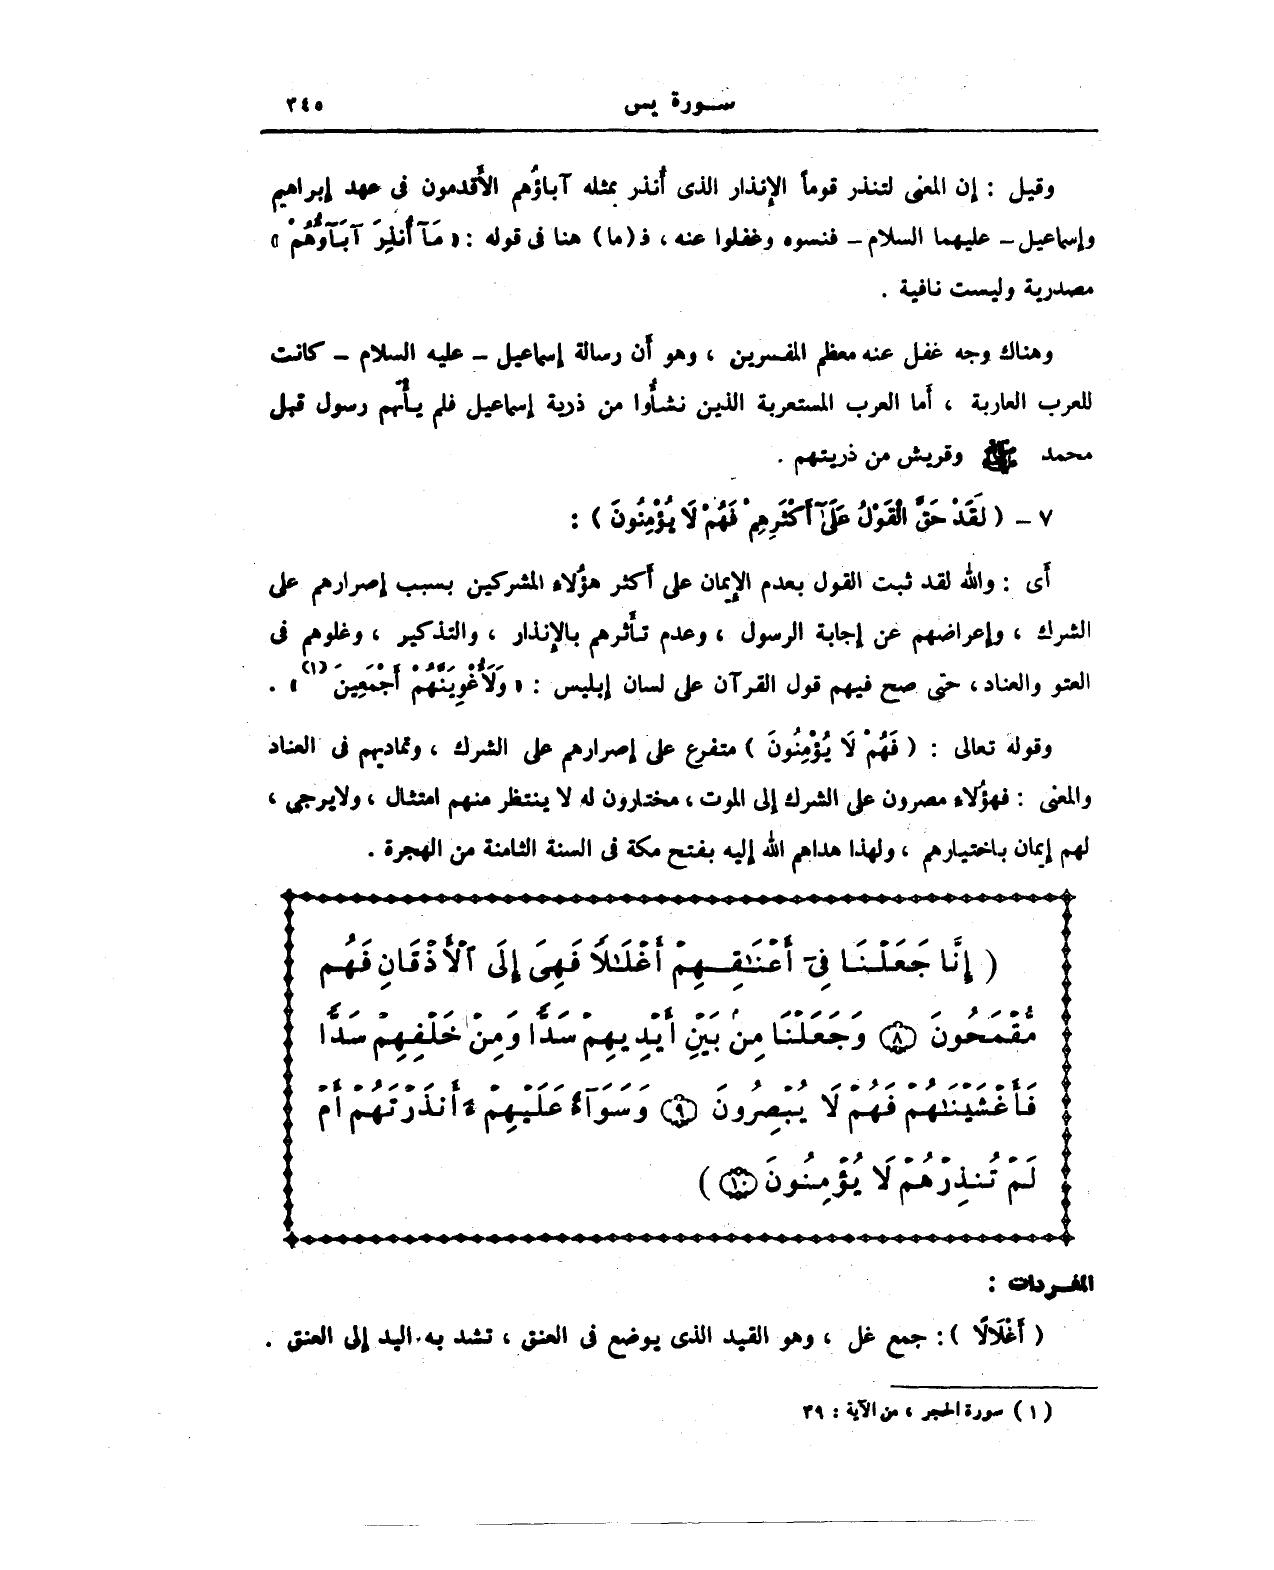 سورة يس ٣٤٥
وقيل : إن المعنى لتنذر قوماً الإنذار الذى أُنذر بمثله آباؤُهم الأَقدمون فى عهد إبراهيم
وإسماعيل – عليهما السلام – فنسوه وغفلوا عنه ، فـ (ما) هنا فى قوله : « مَآ أُنذِرَ آبَآؤُهُمْ »
مصدرية وليست نافية .
وهناك وجه غفل عنه معظم المفسرين ، وهو أَن رسالة إسماعيل – عليه السلام – كانت
للعرب العاربة ، أَما العرب المستعربة الذين نشأُوا من ذرية إسماعيل فلم يأْتهم رسول قبل
محمد ﷺ وقريش من ذريتهم .
٧ – ( لَقَدْ حَقَّ الْقَوْلُ عَلَىٰٓ أَكْثَرِهِمْ فَهُمْ لَا يُؤْمِنُونَ ) :
أَى : والله لقد ثبت القول بعدم الإيمان على أكثر هؤُلاءِ المشركين بسبب إصرارهم على
الشرك ، وإعراضهم عن إجابة الرسول ، وعدم تأَثرهم بالإنذار ، والتذكير ، وغلوهم فى
العتو والعناد ، حتى صح فيهم قول القرآن على لسان إبليس : « وَلَأُغْوِيَنَّهُمْ أَجْمَعِينَ (١) » .
وقوله تعالى : ( فَهُمْ لَا يُؤْمِنُونَ ) متفرع على إصرارهم على الشرك ، وتماديهم فى العناد
والمعنى : فهؤُلاءِ مصرون على الشرك إلى الموت ، مختارون له لا ينتظر منهم امتثال ، ولا يرجى ،
لهم إيمان باختيارهم ، ولهذا هداهم الله إليه بفتح مكة فى السنة الثامنة من الهجرة .
( إِنَّا جَعَلْنَا فِىٓ أَعْنَٰقِهِمْ أَغْلَٰلًا فَهِىَ إِلَى ٱلْأَذْقَانِ فَهُم
مُّقْمَحُونَ ٨ وَجَعَلْنَا مِنۢ بَيْنِ أَيْدِيهِمْ سَدًّا وَمِنْ خَلْفِهِمْ سَدًّا
فَأَغْشَيْنَٰهُمْ فَهُمْ لَا يُبْصِرُونَ ٩ وَسَوَآءٌ عَلَيْهِمْ ءَأَنذَرْتَهُمْ أَمْ
لَمْ تُنذِرْهُمْ لَا يُؤْمِنُونَ ١٠ )
المفردات :
( أَغْلَالًا ) : جمع غل ، وهو القيد الذى يوضع فى العنق ، تشد به اليد إلى العنق .
(١) سورة الحجر ، من الآية : ٣٩